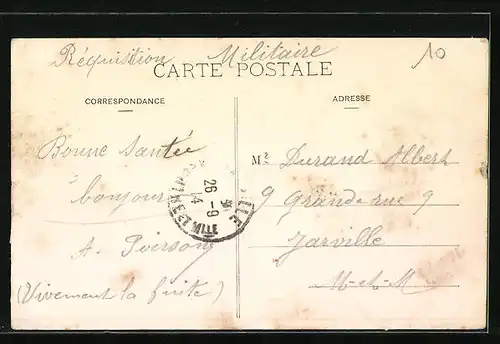 Réquisition Militaire
10
CARTE POSTALE
CORRESPONDANCE
ADRESSE
Bonne Santée
bonjour
A. Poirson
(Vivement la fuite)
Mr Durand Albert
9 Grande rue 9
Jarville
M-et-M
26-9
14
ET MLLE